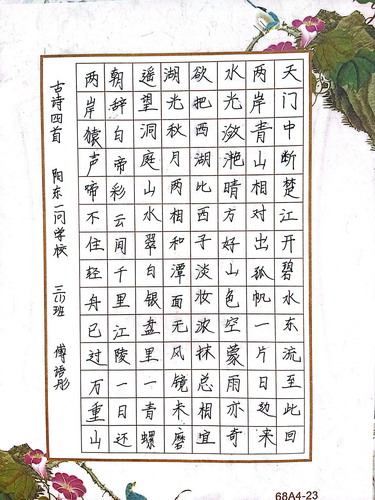 天门中断楚江开碧水东流至此回
两岸青山相对出孤帆一片日边来
水光潋滟晴方好山色空蒙雨亦奇
欲把西湖比西子淡妆浓抹总相宜
湖光秋月两相和潭面无风镜未磨
遥望洞庭山水翠白银盘里一青螺
朝辞白帝彩云间千里江陵一日还
两岸猿声啼不住轻舟已过万重山
古诗四首 阳东一问学校 三(1)班 傅语彤
68A4-23